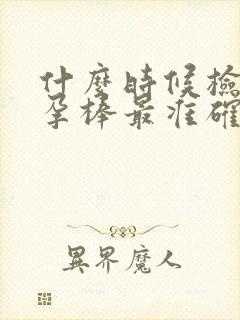 什麼時候檢
孕棒最准確
異界魔人